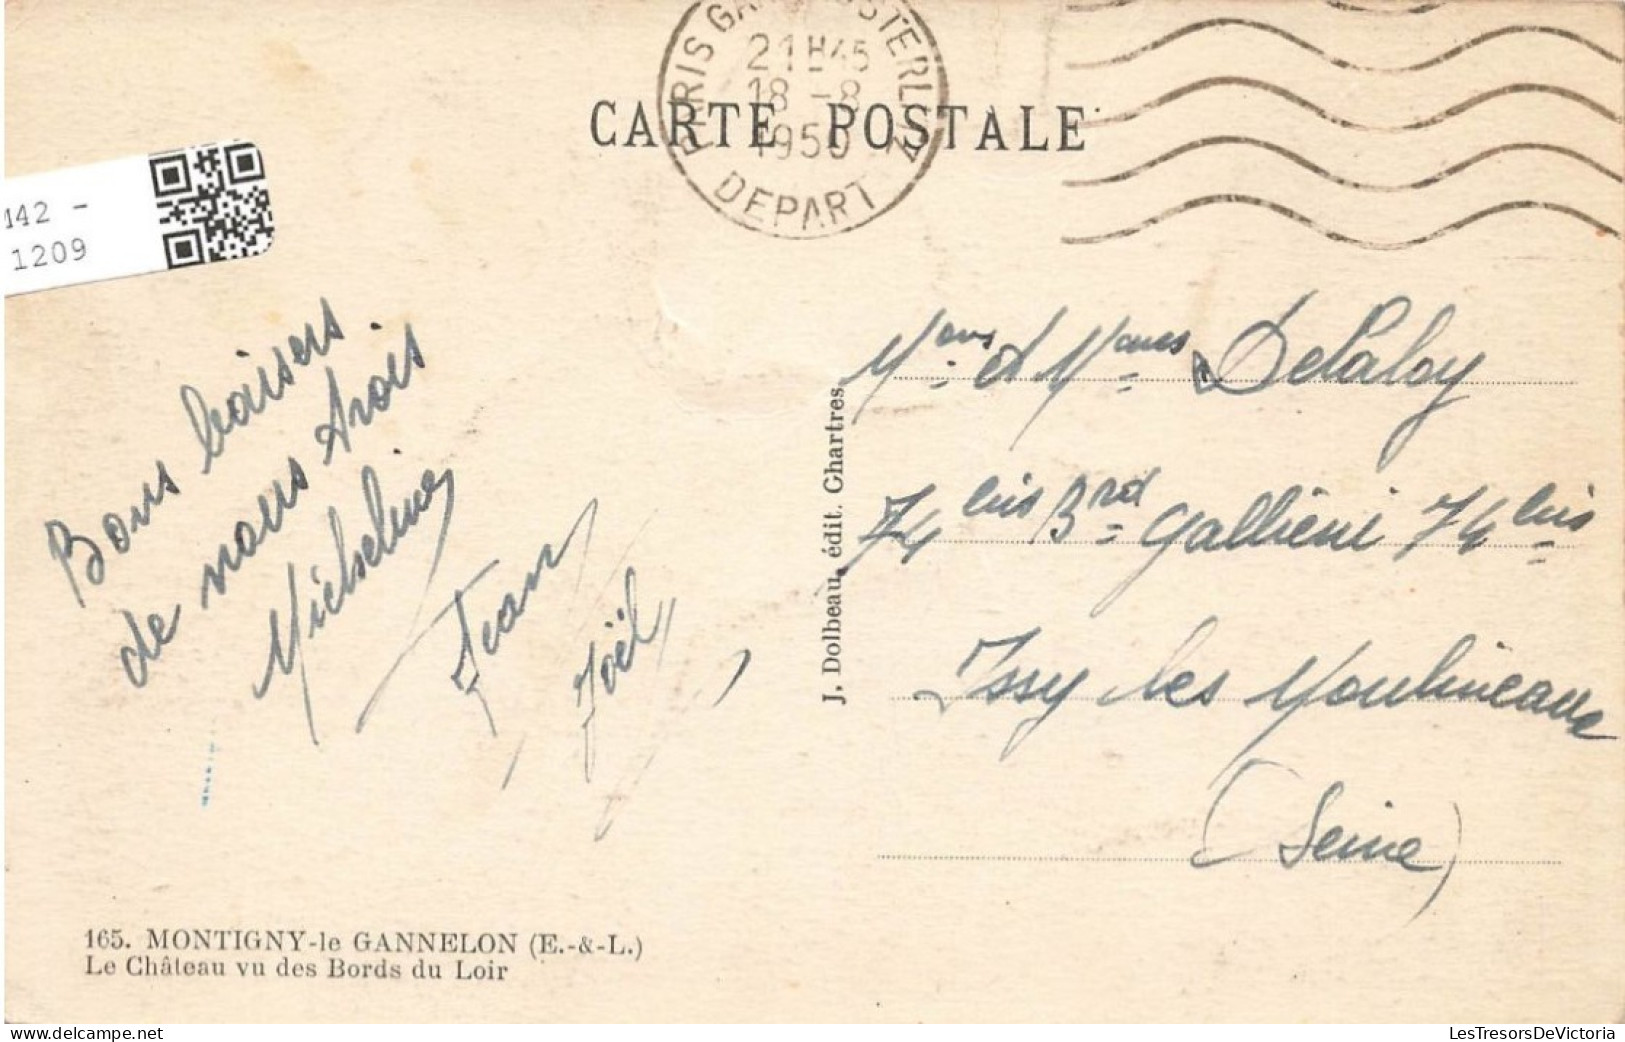 PARIS GARE D'AUSTERLITZ
21H45
18 - 8
1950
DEPART
CARTE POSTALE
142 -
1209
Bons baisers
de nous trois
Micheline
Jean
Joël
Mons et Mmes Delaloy
74 bis Brd Galliéni 74 bis
Issy les Moulineaux
(Seine)
J. Dolbeau, édit. Chartres
165. MONTIGNY-le GANNELON (E.-&-L.)
Le Château vu des Bords du Loir
delcampe.net
LesTresorsDeVictoria